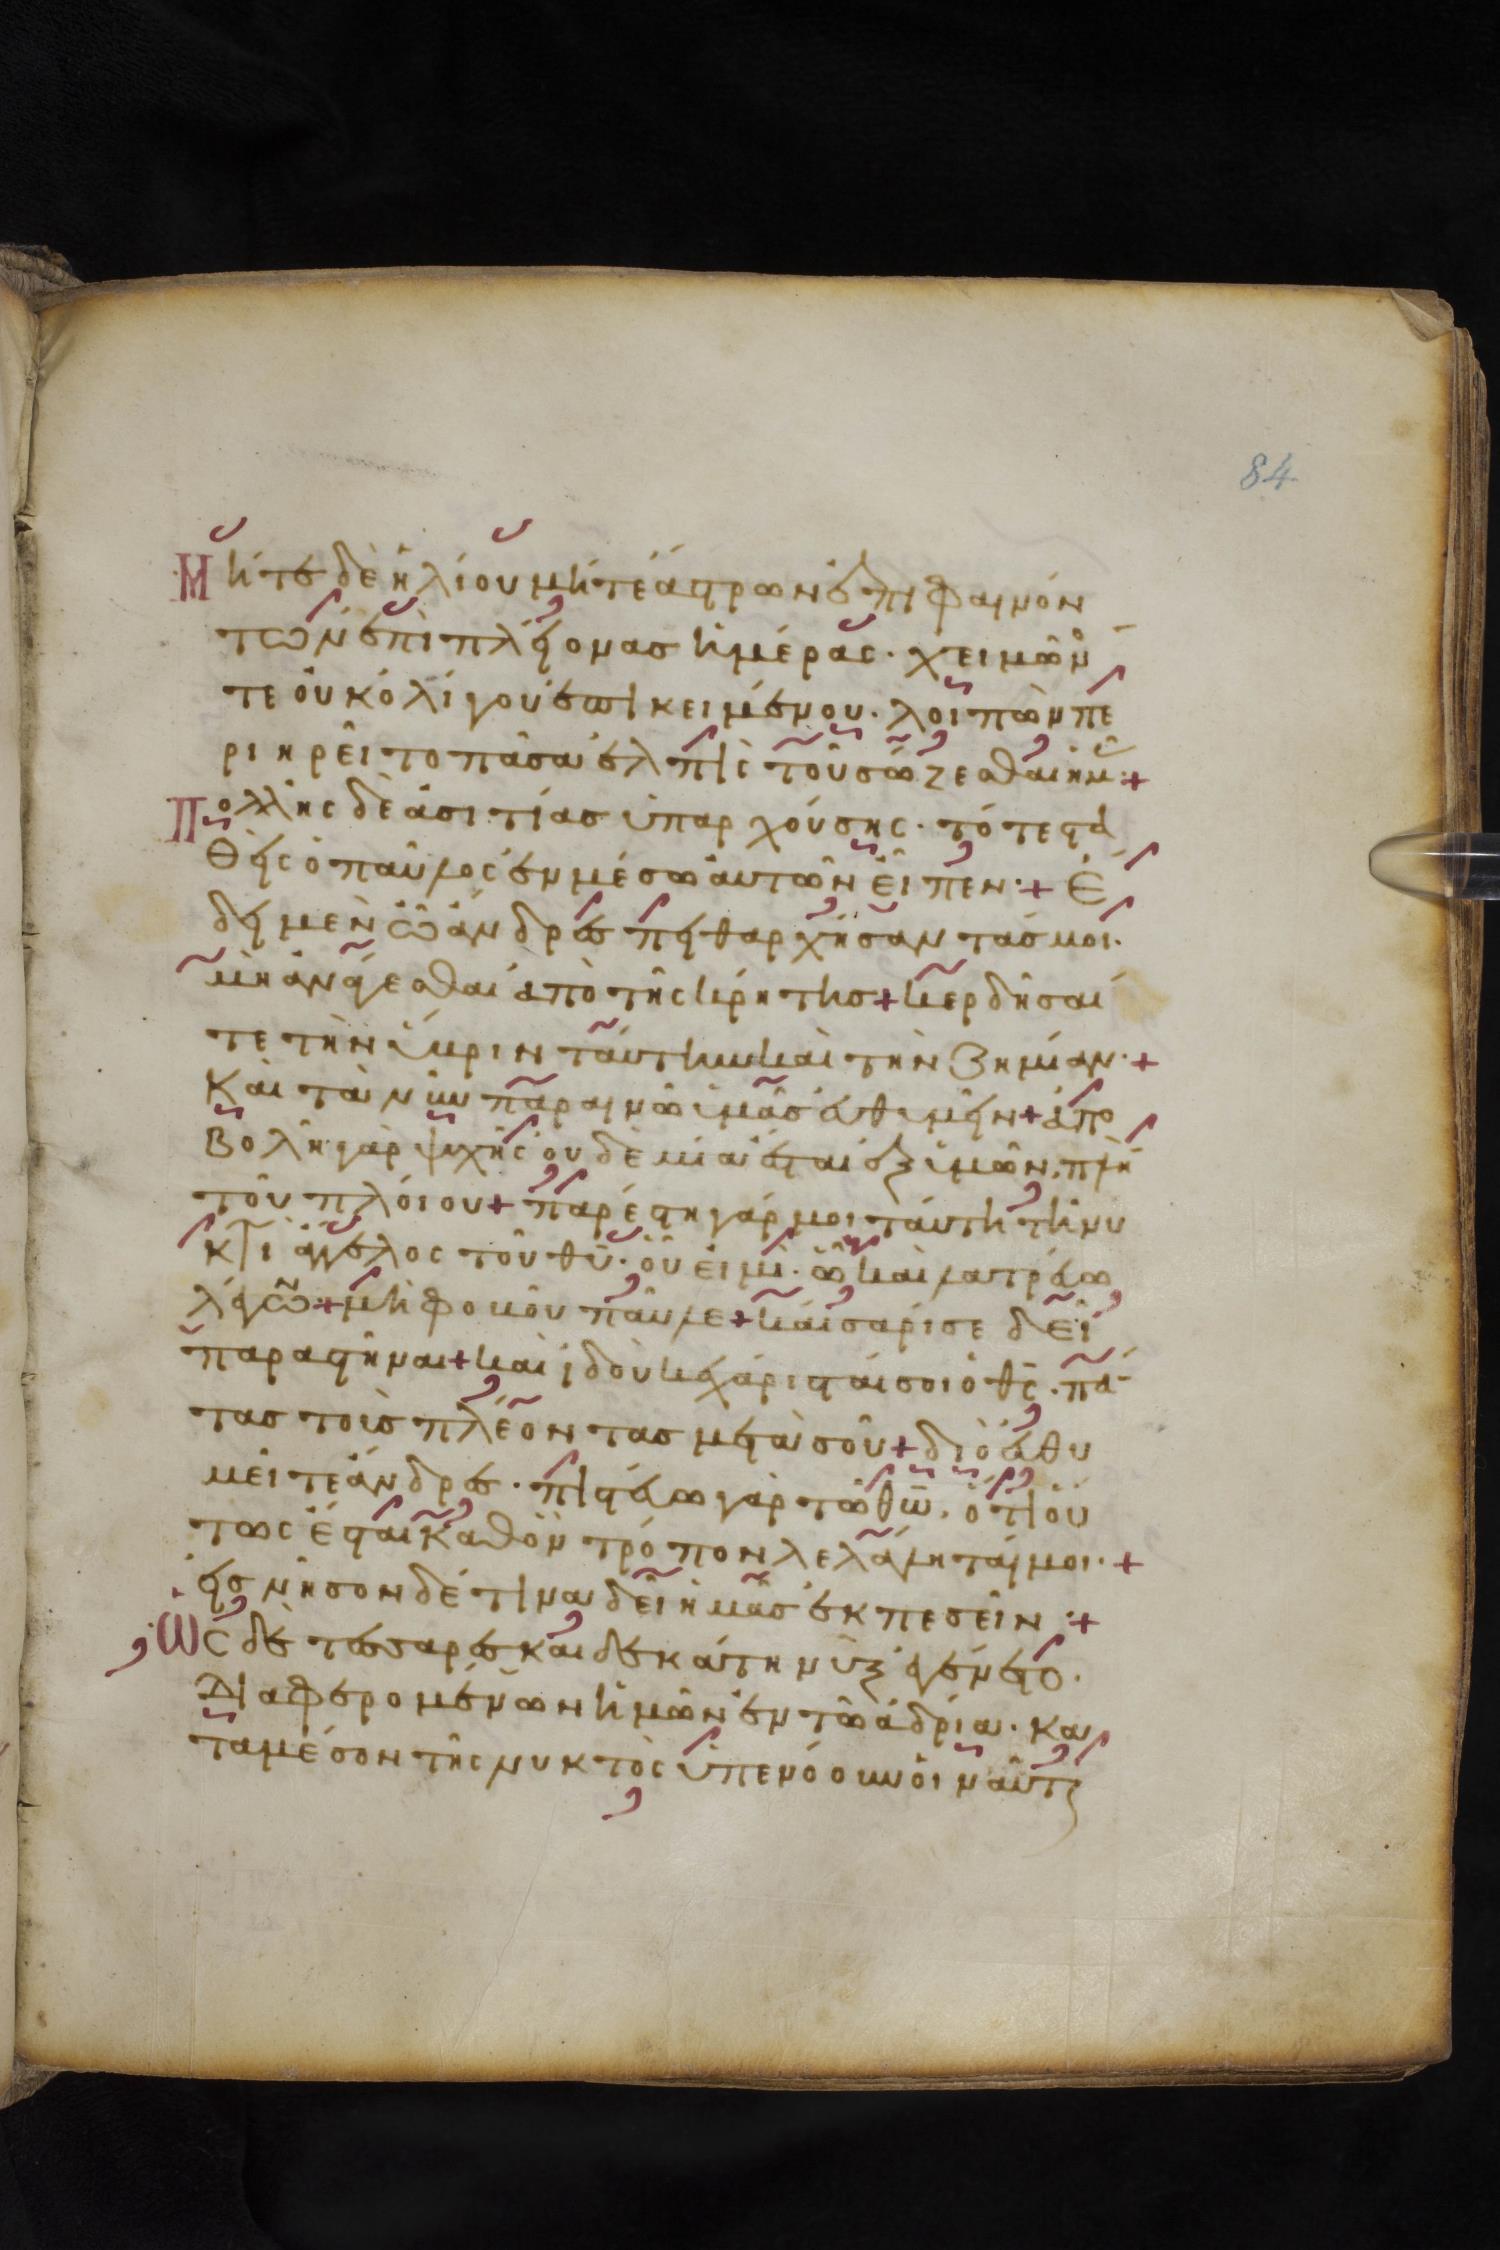 84
Μήτε δὲ ἡλίου μήτε ἄστρων ἐπιφαινόν
των ἐπὶ πλείονας ἡμέρας · χειμῶν
τε οὐκ ὀλίγου ἐπικειμένου · λοιπὸν πε
ριηρεῖτο πᾶσα ἐλπὶς τοῦ σώζεσθαι ἡμ :+
Πολλῆς δὲ ἀσιτίας ὑπαρχούσης · τότε στα
θεὶς ὁ παῦλος ἐν μέσω αὐτῶν εἶπεν :+ Ἔ
δει μὲν ὦ ἄνδρες πειθαρχήσαντάς μοι ·
μὴ ἀνάγεσθαι ἀπὸ τῆς κρήτης + κερδῆσαί
τε τὴν ὕβριν ταύτην καὶ τὴν ζημίαν · +
Καὶ τὰ νῦν παραινῶ ὑμᾶς εὐθυμεῖν + ἀπο
βολὴ γὰρ ψυχῆς οὐδεμία ἔσται ἐξ ὑμῶν, πλὴ
τοῦ πλοίου + παρέστη γάρ μοι ταύτη τῆ νυ
κτὶ ἄγγελος τοῦ θυ · οὗ εἰμὶ · ὧ καὶ λατρεύω
λέγων :+ μὴ φοβοῦ παῦλε + καίσαρί σε δεῖ
παραστῆναι + καὶ ἰδοὺ κεχάρισταί σοι ὁ θς · πά
τας τοὺς πλέοντας μετὰ σοῦ + διὸ εὐθυ
μεῖτε ἄνδρες · πιστεύω γὰρ τῶ θω · ὅτι οὕ
τως ἔσται καθ' ὃν τρόπον λελάληταί μοι · +
εἰς νῆσον δέ τινα δεῖ ἡμᾶς ἐκπεσεῖν :+
Ὡς δὲ τεσσαρεσκαιδεκάτη νὺξ ἐγένετο ·
Διαφερομένων ἡμῶν ἐν τῶ ἀδρία · κα
τα μέσον τῆς νυκτὸς ὑπενόουν οἱ ναῦται